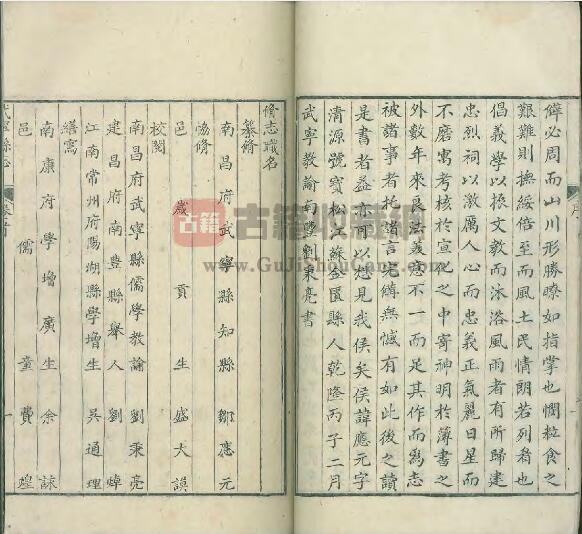 俾必周而山川形勝瞭如指掌也憫粒食之
艱難則撫綏倍至而風土民情朗若列眉也
倡義學以振文教而沐浴風雨者有所歸建
忠烈祠以激厲人心而忠義正氣麗日星而
不磨寓考核於宣化之中寄神明於簿書之
外數年來良法美意不一而足其作而爲志
被諸事者托諸言兩無憾有如此後之讀
是書者益亦可以想見我侯矣侯諱應元字
清源號寶松江蘇金匱縣人乾隆丙子二月
武寧教諭南豐劉秉亮書
脩志職名
纂脩
南昌府武寧縣知縣鄒應元
協脩
邑歲貢生盛大謨
校閱
南昌府武寧縣儒學教諭劉秉亮
建昌府南豐縣舉人劉焯
江南常州府陽湖縣學增生吳通理
繕寫
南康府學增廣生余諫
邑儒童費煌
武寧縣志
卷首
一
序
古籍收藏網
www.GuJiShouCang.com